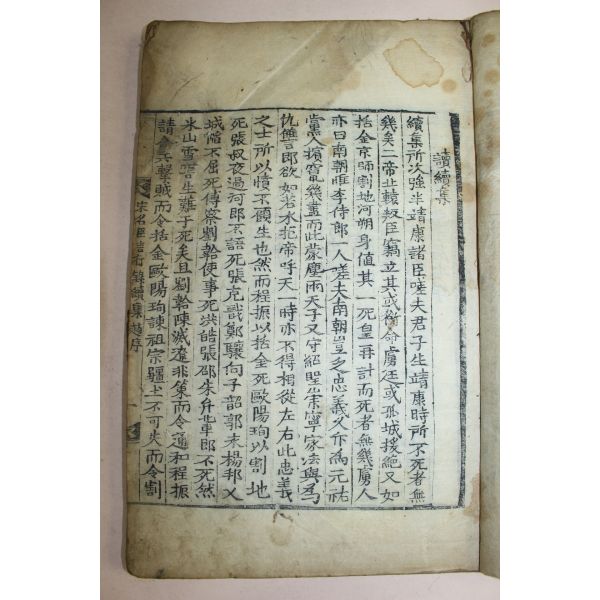 讀續集
續集所次強半靖康諸臣嗟夫君子生靖康時所不死者無
幾矣一帝北轅叛臣竊立其或銜命虜廷或孤城援絶又如
括金京師割地河朔身値其一死皇再計而死者無幾虜人
亦曰南朝惟李侍郎一人嗟夫南朝豈乏忠義乂作爲元祐
黨人擯竄幾盡而此蒙塵兩天子又守紹聖崇寧家法與爲
仇讐言郎欲如若水抱帝呼天一時亦不得相從左右此忠義
之士所以憤不顧生也然而程振以括金死歐陽珣以割地
死張叔夜過河郎不語死張克戩鄭驤向子韶郭永楊邦乂
城陷不屈死傅察劉韐使事死洪皓張邵朱弁軰郎不死然
氷山雪窖生難于死矣且劉韐陳滅遼非策而令通和程振
請會兵擊賊而令括金歐陽珣諫祖宗疆土不可失而令割
宋名臣言行錄續集 序